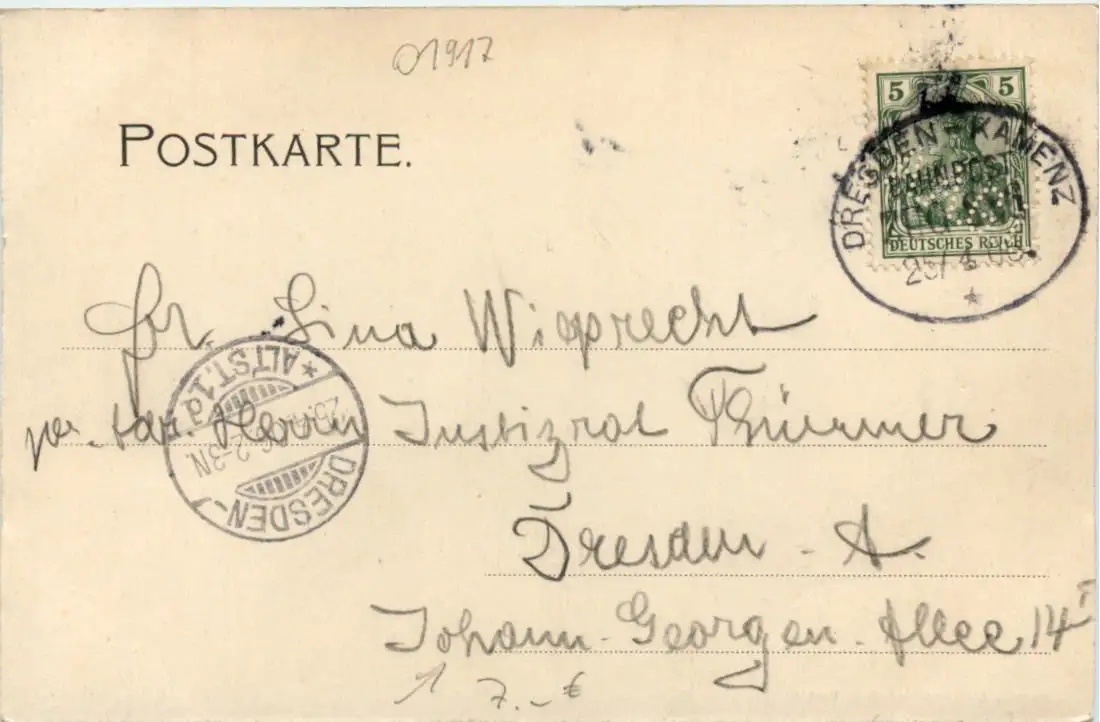 01917
POSTKARTE.
5 5
DEUTSCHES REICH
DRESDEN - KAMENZ
BAHNPOST
ZUG
25/4 06
Fr. Lina Wigprecht
Herrn Justizrat Thürmer
Dresden - A.
Johann-Georgen-Allee 14 I
DRESDEN-
*ALTST.1d
2-3N
1 7.-€